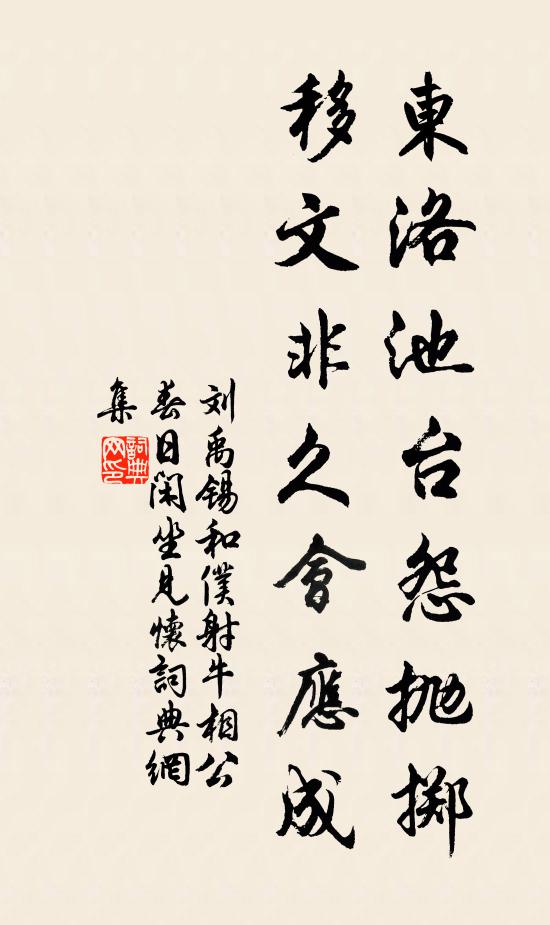 東洛池台怨抛掷
移文非久會應成
刘禹锡和僕射牛相公
春日閑坐見懷詞典網
集
詞典網印